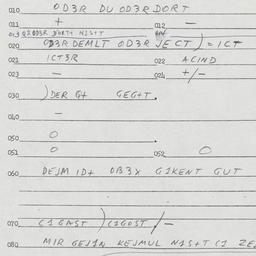 010 OD3R DU OD3R DORT
011 + 012 –
013 OD3R DORTH NIST
020 OD3R DEMLT OD3R JECT) = ICT
021 ICT3R 022 ACIND
023 – 024 +/–
030 ) DER GT GEGT.
040 –
050 O
051 O 052 O
060 DEJM IDT OB3X GIKENT GUT
070 CIGAST ) CIGOST /–
080 MIR GEJIN KEJMUL NIST CI ZE